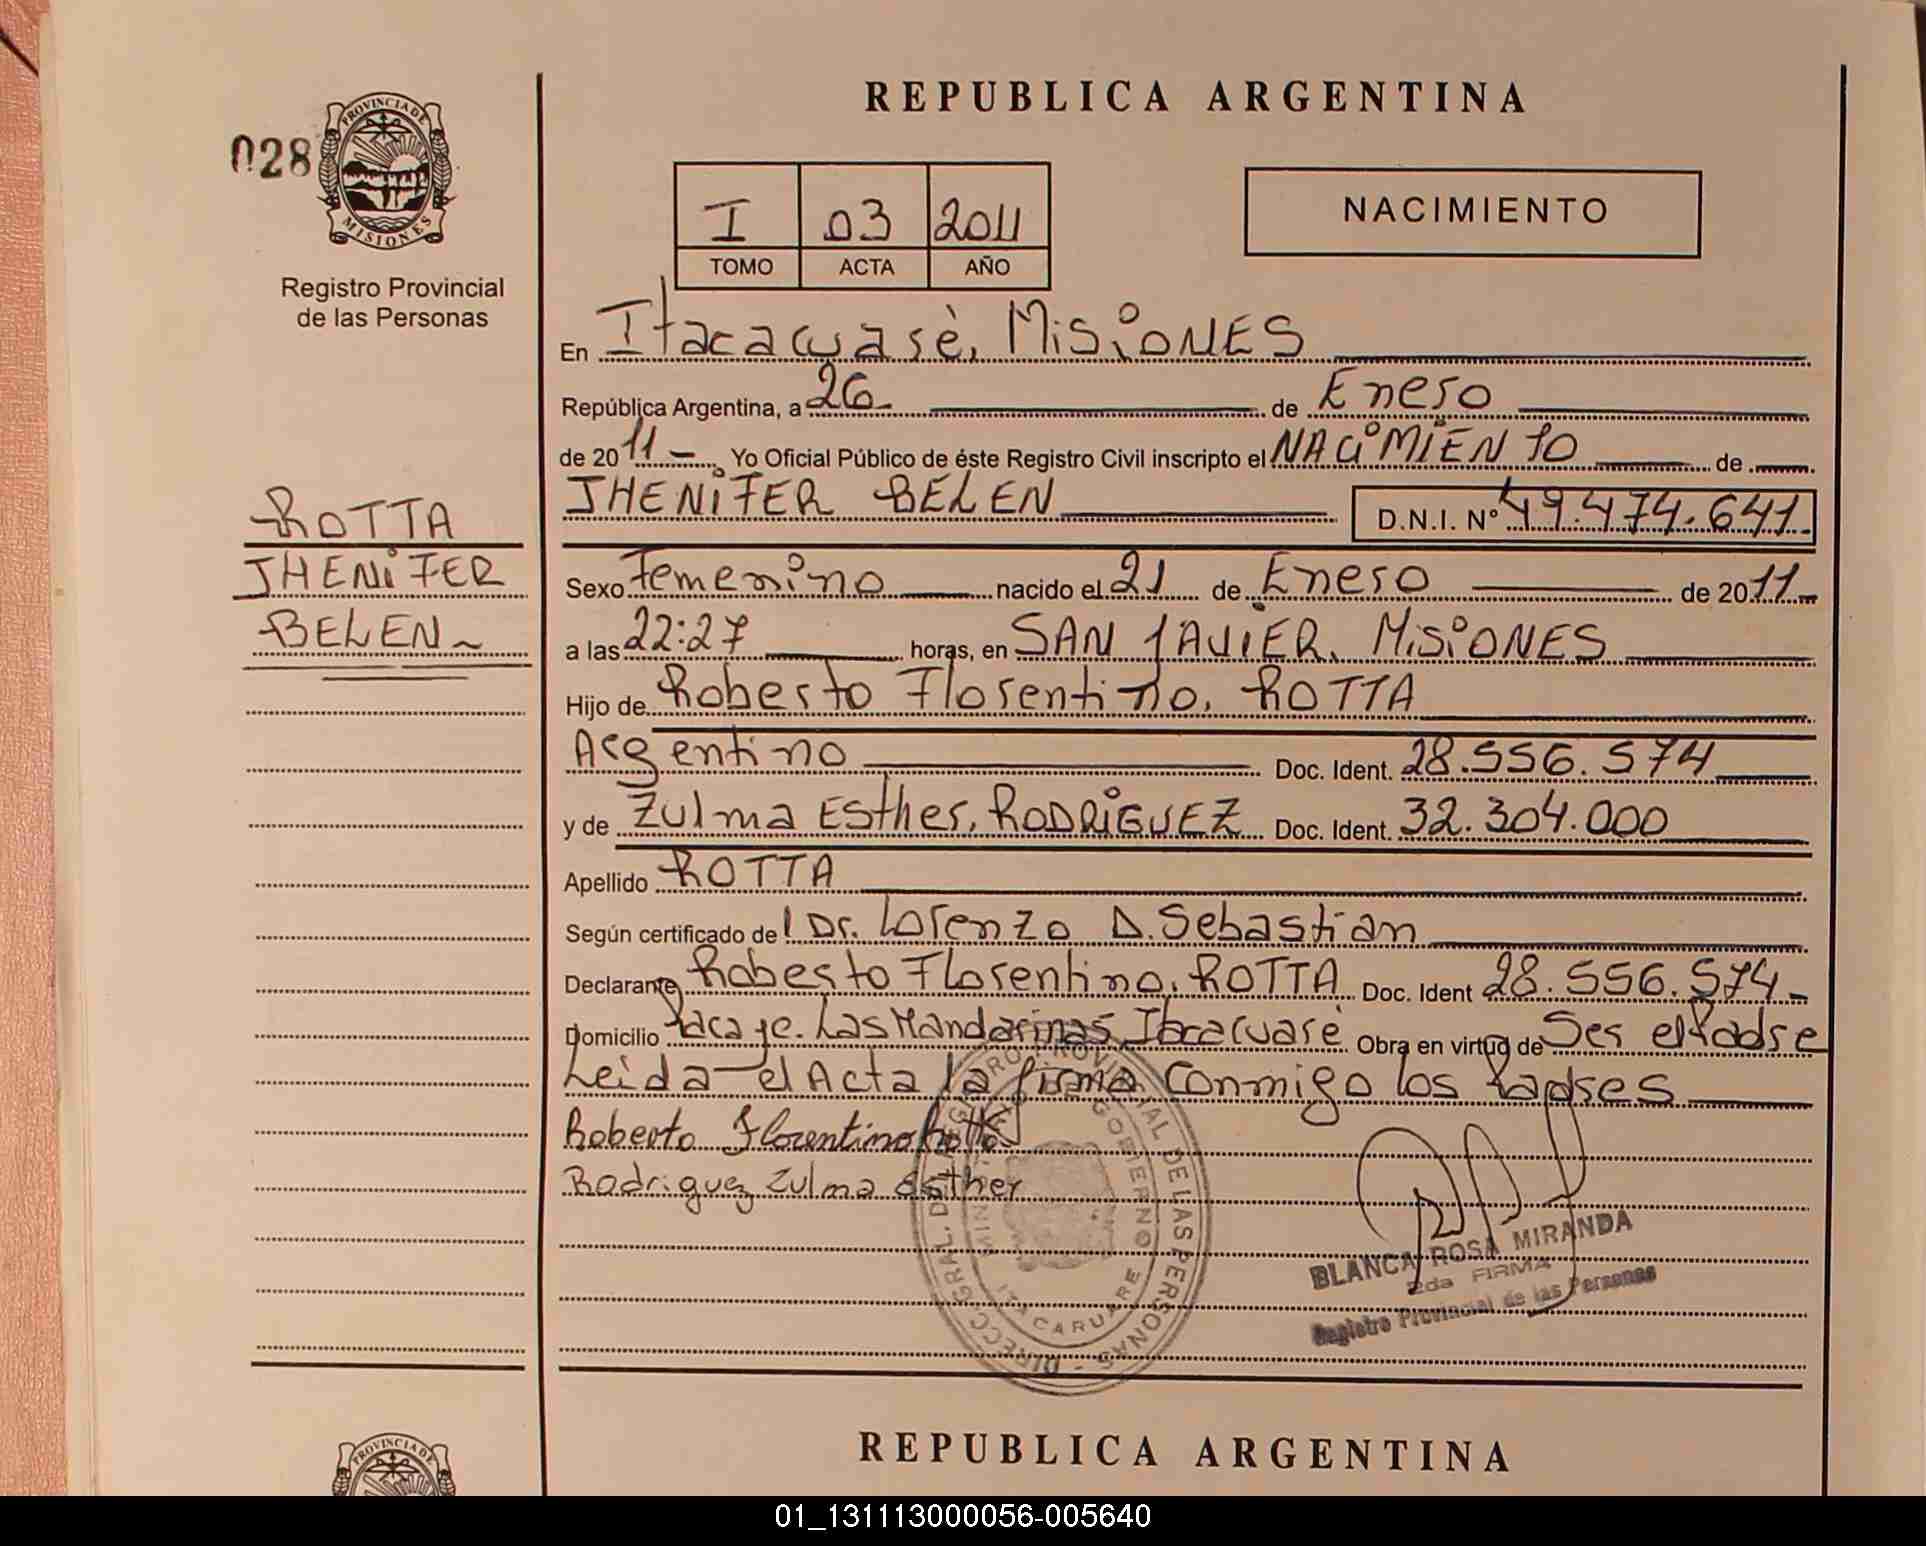 REPUBLICA ARGENTINA
028
PROVINCIA DE
MISIONES
Registro Provincial
de las Personas
I 03 2011
TOMO ACTA AÑO
NACIMIENTO
En Itacacuasè, MisiONES
República Argentina, a 26 de Eneso
de 2011 - Yo Oficial Público de éste Registro Civil inscripto el NACiMiENTO de
JHENiFER BELEN D.N.I. Nº 49.474.641.-
ROTTA
JHENiFER
BELEN ~
Sexo Femenino nacido el 21 de Eneso de 2011 -
a las 22:27 horas, en SAN JAViER, MisiONES
Hijo de Robesto Flosentino, ROTTA
Argentino Doc. Ident. 28.556.574
y de Zulma Esthes, RODRiGUEZ Doc. Ident. 32.304.000
Apellido ROTTA
Según certificado de l Dr. Lorenzo D. Sebastian
Declarante Robesto Flosentino, ROTTA Doc. Ident 28.556.574 -
Domicilio Las Mandarinas, Obra en virtud de Ses el Padse
Leida el Acta la firma conmigo los Padses
Roberto Florentino Rotta
Rodriguez Zulma esther
DIRECC. GRAL. DEL REGISTRO PROVINCIAL DE LAS PERSONAS -
GOBIERNO
ITACARUARE
BLANCA ROSA MIRANDA
2da FIRMA
Registro Provincial de las Personas
PROVINCIA DE
REPUBLICA ARGENTINA
01_131113000056-005640